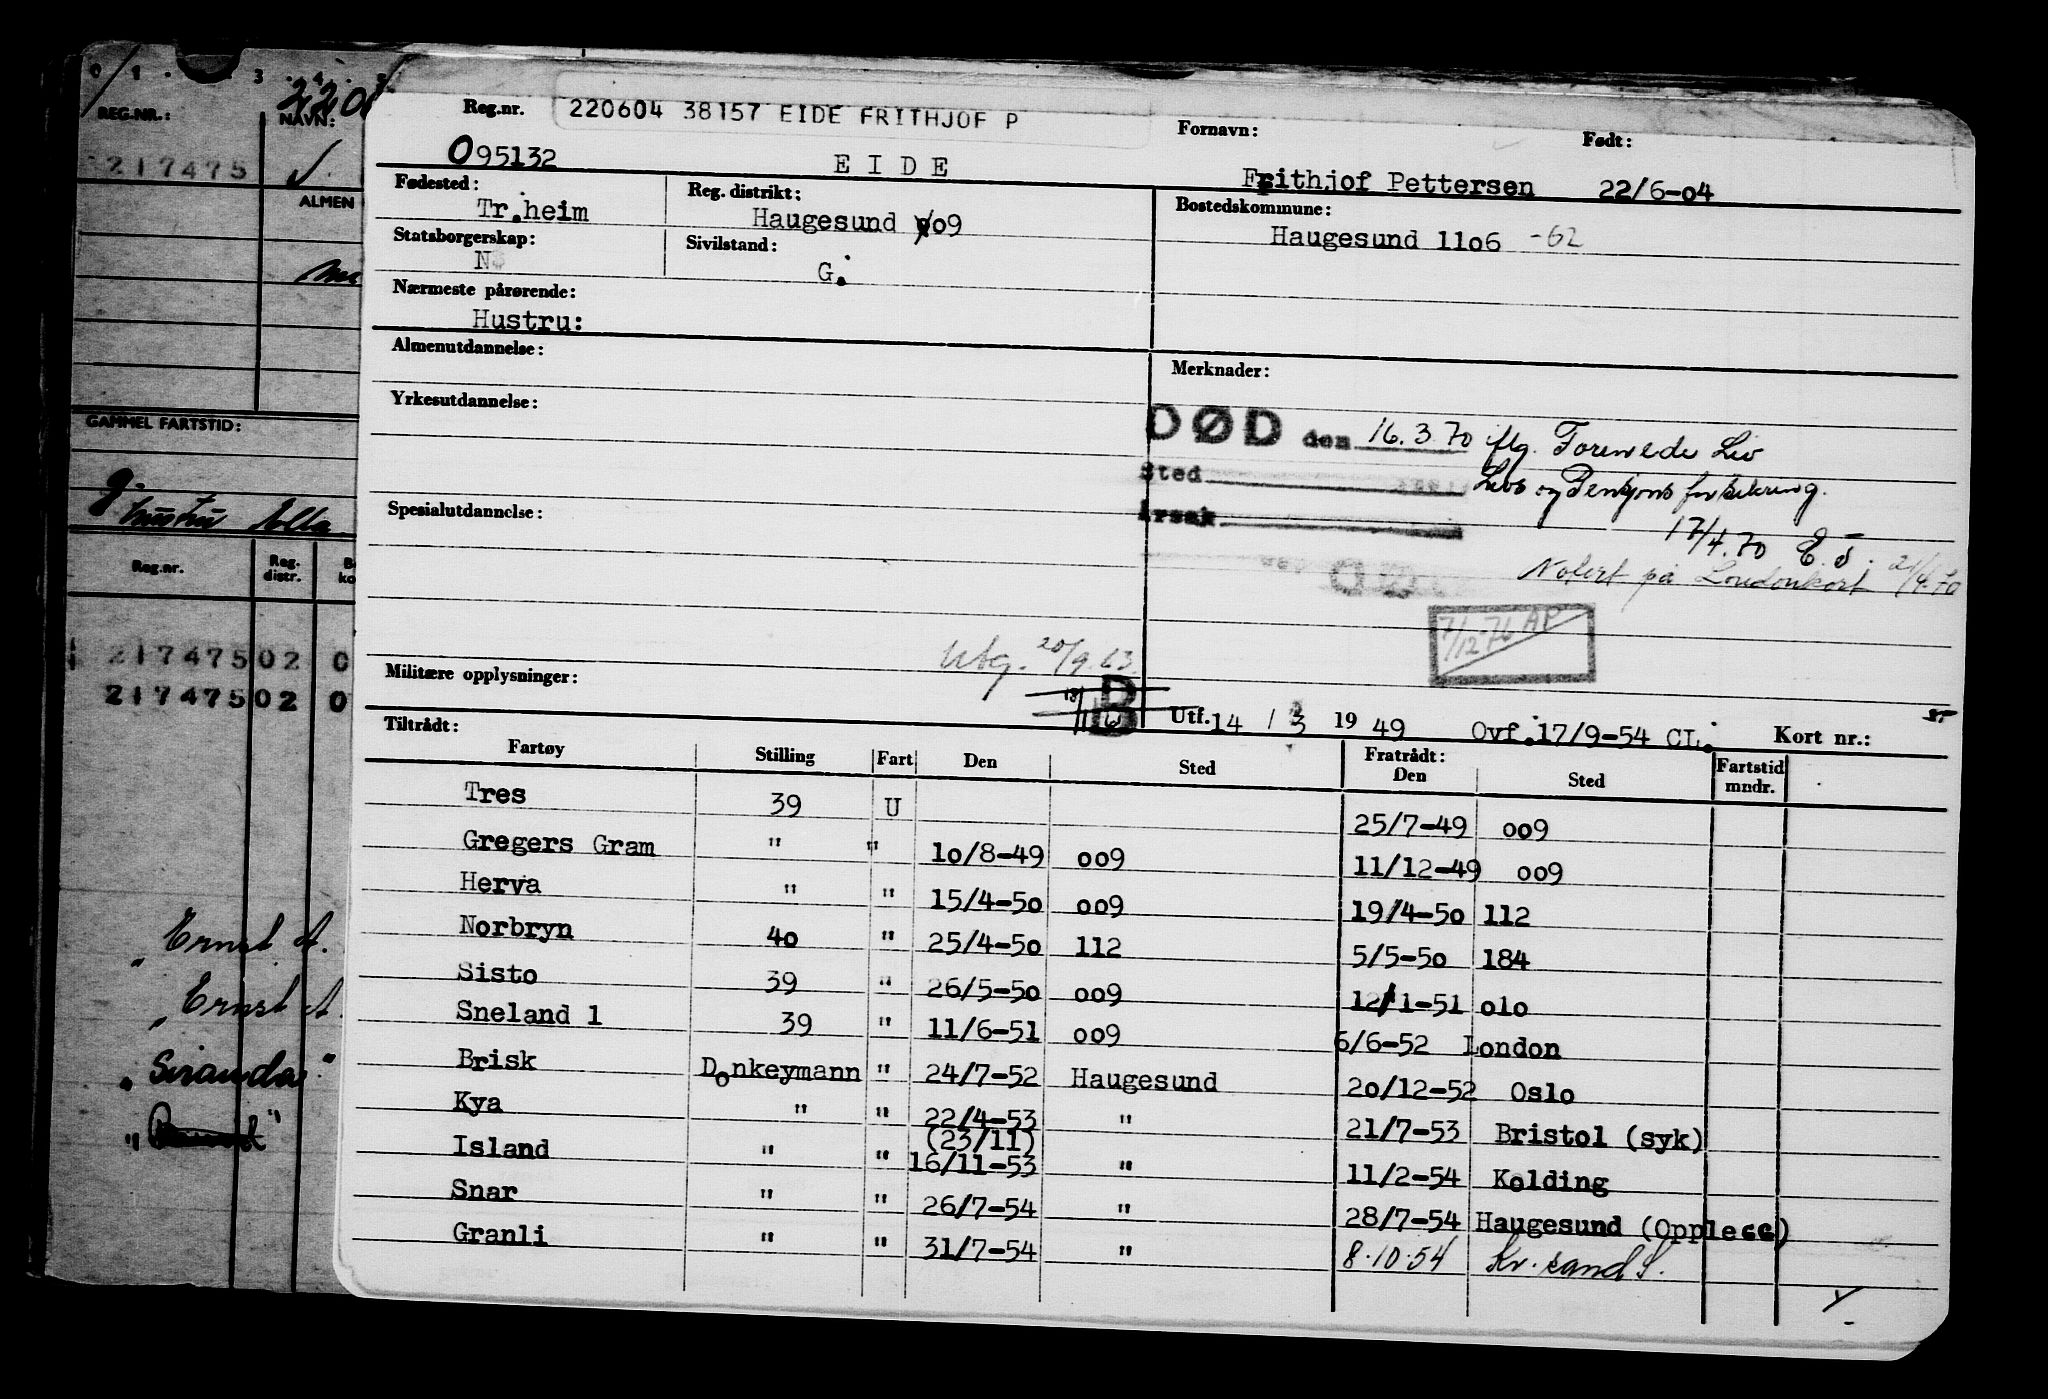 0 1 . . 3 . 4 . 5
REG.NR.: NAVN:
217475
ALMEN
GAMMEL FARTSTID:
g.
hustru Ella
Reg.nr. Reg. distr.
217475 02 0
217475 02 0
"Ernst A.
"Ernst A.
"Siranda"
Reg.nr. 220604 38157 EIDE FRITHJOF P
Fornavn: Født:
095132 E I D E Frithjof Pettersen 22/6-04
Fødested: Reg. distrikt: Bostedskommune:
Tr.heim Haugesund 009 Haugesund 11o6 -62
Statsborgerskap: Sivilstand:
N G.
Nærmeste pårørende:
Hustru:
Almenutdannelse: Merknader:
Yrkesutdannelse:
DØD den 16.3.70 iflg. Forenede Liv
Sted Livs og Pensjonsforsikring.
Årsak 17/4.70 E.J.
Spesialutdannelse:
Notert på Londonkort 21/4.70
7/12-76 AP
Utg. 20/9.63
Militære opplysninger:
B
Utf. 14 / 3 19 49 Ovf. 17/9-54 CL. Kort nr.:
Tiltrådt: Fratrådt:
Fartøy Stilling Fart Den Sted Den Sted Fartstid mndr.
Tres 39 U 25/7-49 oo9
Gregers Gram " " 10/8-49 oo9 11/12-49 oo9
Herva " " 15/4-5o oo9 19/4-5o 112
Norbryn 4o " 25/4-5o 112 5/5-5o 184
Sisto 39 " 26/5-5o oo9 12/1-51 o1o
Sneland 1 39 " 11/6-51 oo9 6/6-52 London
Brisk Donkeymann " 24/7-52 Haugesund 2o/12-52 Oslo
Kya " " 22/4-53 " 21/7-53 Bristol (syk)
(23/11)
Island " " 16/11-53 " 11/2-54 Kolding
Snar " " 26/7-54 " 28/7-54 Haugesund (Opplegg)
Granli " " 31/7-54 " 8.10.54 Kr.sand S.